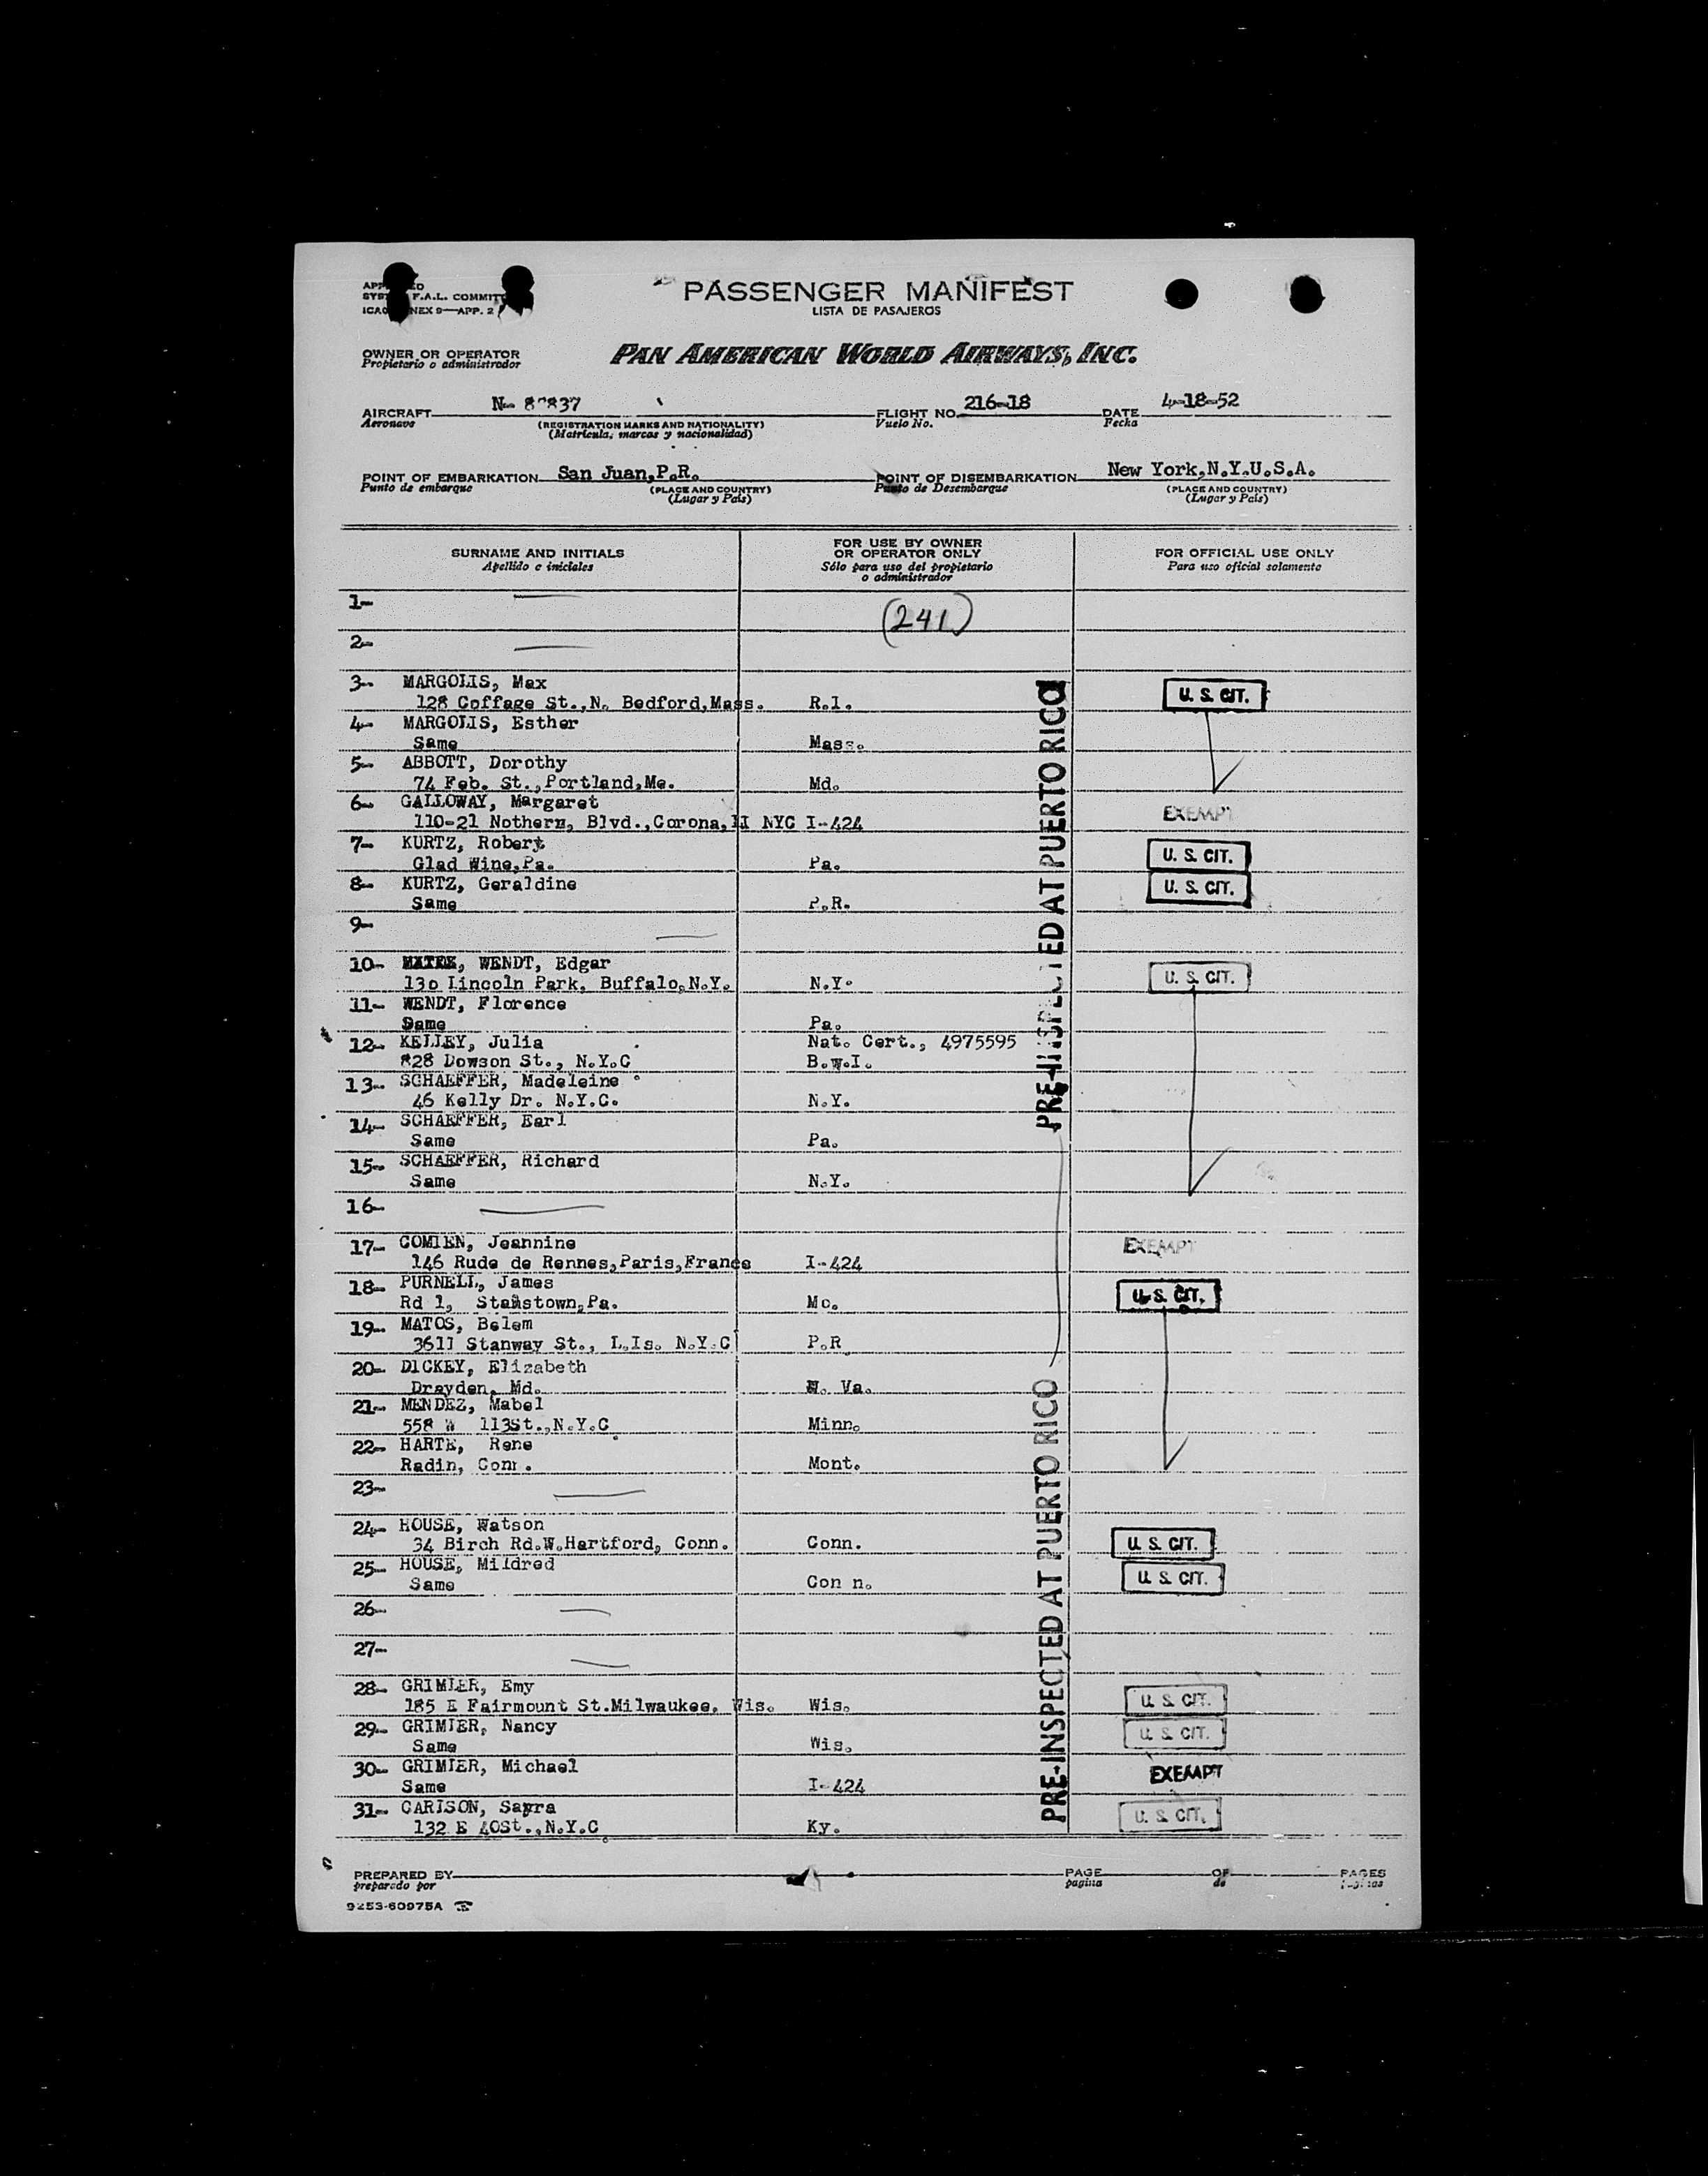 PASSENGER MANIFEST
LISTA DE PASAJEROS
F.A.L.
APP. 2
OWNER OR OPERATOR
Propietario o administrador
PAN AMERICAN WORLD AIRWAYS, INC.
AIRCRAFT
Aeronave
(REGISTRATION MARKS AND NATIONALITY)
(Matrícula, marcas y nacionalidad)
FLIGHT NO. 216-18
Vuelo No.
DATE 4-18-52
Fecha
POINT OF EMBARKATION San Juan,P.R.
Punto de embarque
(PLACE AND COUNTRY)
(Lugar y País)
POINT OF DISEMBARKATION New York,N.Y.U.S.A.
Punto de Desembarque
(PLACE AND COUNTRY)
(Lugar y País)
SURNAME AND INITIALS
Apellido e iniciales
FOR USE BY OWNER
OR OPERATOR ONLY
Sólo para uso del propietario
o administrador
FOR OFFICIAL USE ONLY
Para uso oficial solamente
1-
(241)
2-
3- MARGOLIS, Max
128 Coffage St.,N. Bedford,Mass. R.I. U. S. CIT.
4- MARGOLIS, Esther
Same Mass.
5- ABBOTT, Dorothy
74 Feb. St.,Portland,Me. Md.
6- GALLOWAY, Margaret
110-21 Nothern, Blvd.,Corona, NYC I-424 EXEMPT
7- KURTZ, Robert
Glad Wine,Pa. Pa. U. S. CIT.
8- KURTZ, Geraldine
Same P.R. U. S. CIT.
9-
10- WENDT, Edgar
130 Lincoln Park, Buffalo,N.Y. N.Y. U. S. CIT.
11- WENDT, Florence
Same Pa.
12- KELLEY, Julia Nat. Cert., 4975595
828 Dowson St., N.Y.C B.W.I.
13- SCHAEFFER, Madeleine
46 Kelly Dr. N.Y.C. N.Y.
14- SCHAEFFER, Earl
Same Pa.
15- SCHAEFFER, Richard
Same N.Y.
PRE-INSPECTED AT PUERTO RICO
16-
17- COMIEN, Jeannine
146 Rude de Rennes,Paris,France I-424 EXEMPT
18- PURNELL, James
Rd 1, Stamstown,Pa. Mo. U. S. CIT.
19- MATOS, Belem
3611 Stanway St., L.Is. N.Y.C P.R
20- DICKEY, Elizabeth
Drayden, Md. W. Va.
21- MENDEZ, Mabel
558 W 113St.,N.Y.C Minn.
22- HARTE, Rene
Radin, Conn. Mont.
23-
24- HOUSE, Watson
34 Birch Rd.W.Hartford, Conn. Conn. U. S. CIT.
25- HOUSE, Mildred
Same Con n. U. S. CIT.
26-
27-
28- GRIMLER, Emy
185 E Fairmount St.Milwaukee, Wis. Wis. U. S. CIT.
29- GRIMLER, Nancy
Same Wis. U. S. CIT.
30- GRIMLER, Michael
Same I-424 EXEMPT
31- CARLSON, Sapra
132 E 40St.,N.Y.C Ky. U. S. CIT.
PRE-INSPECTED AT PUERTO RICO
PREPARED BY
preparado por
PAGE OF PAGES
pagina de
9253-60975A